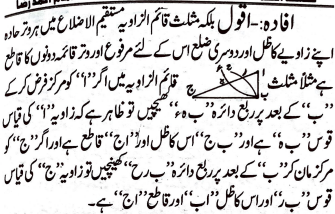 افادہ:- اقول بلکہ مثلث قائم الزاویہ مستقیم الاضلاع میں ہر وتر حادہ
اپنے زاویے کا ظل اور دوسری ضلع اس کے لئے مرفوع اور وتر قائمہ دونوں کا قاطع
ہے مثلاً مثلث قائم الزاویہ میں اگر "ا" کو مرکز فرض کر کے
"ب" کے بعد پر ربع دائرہ "ب ہ ء" کھینچیں تو ظاہر ہے کہ زاویہ "ا" کی قیاس
قوس "ب ہ" ہے اور "ب ج" اس کا ظل اور "ا ج" قاطع ہے اور اگر "ج" کو
مرکز مان کر "ب" کے بعد پر ربع دائرہ "ب ر ح" کھینچیں تو زاویہ "ج" کی قیاس
قوس "ب ر" اور اس کا ظل "ا ب" اور قاطع "ا ج" ہے۔